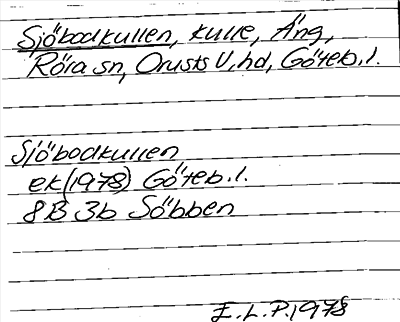 Sjöbodkullen, kulle, Äng,
Röra sn, Orusts V. hd, Göteb. l.
Sjöbodkullen
ek (1978) Göteb. l.
8B 3b Söbben
E. L. P. 1978